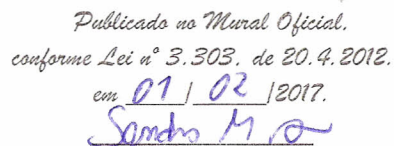 Publicado no Mural Oficial.
conforme Lei nº 3.303. de 20.4.2012.
em 01 / 02 /2017.